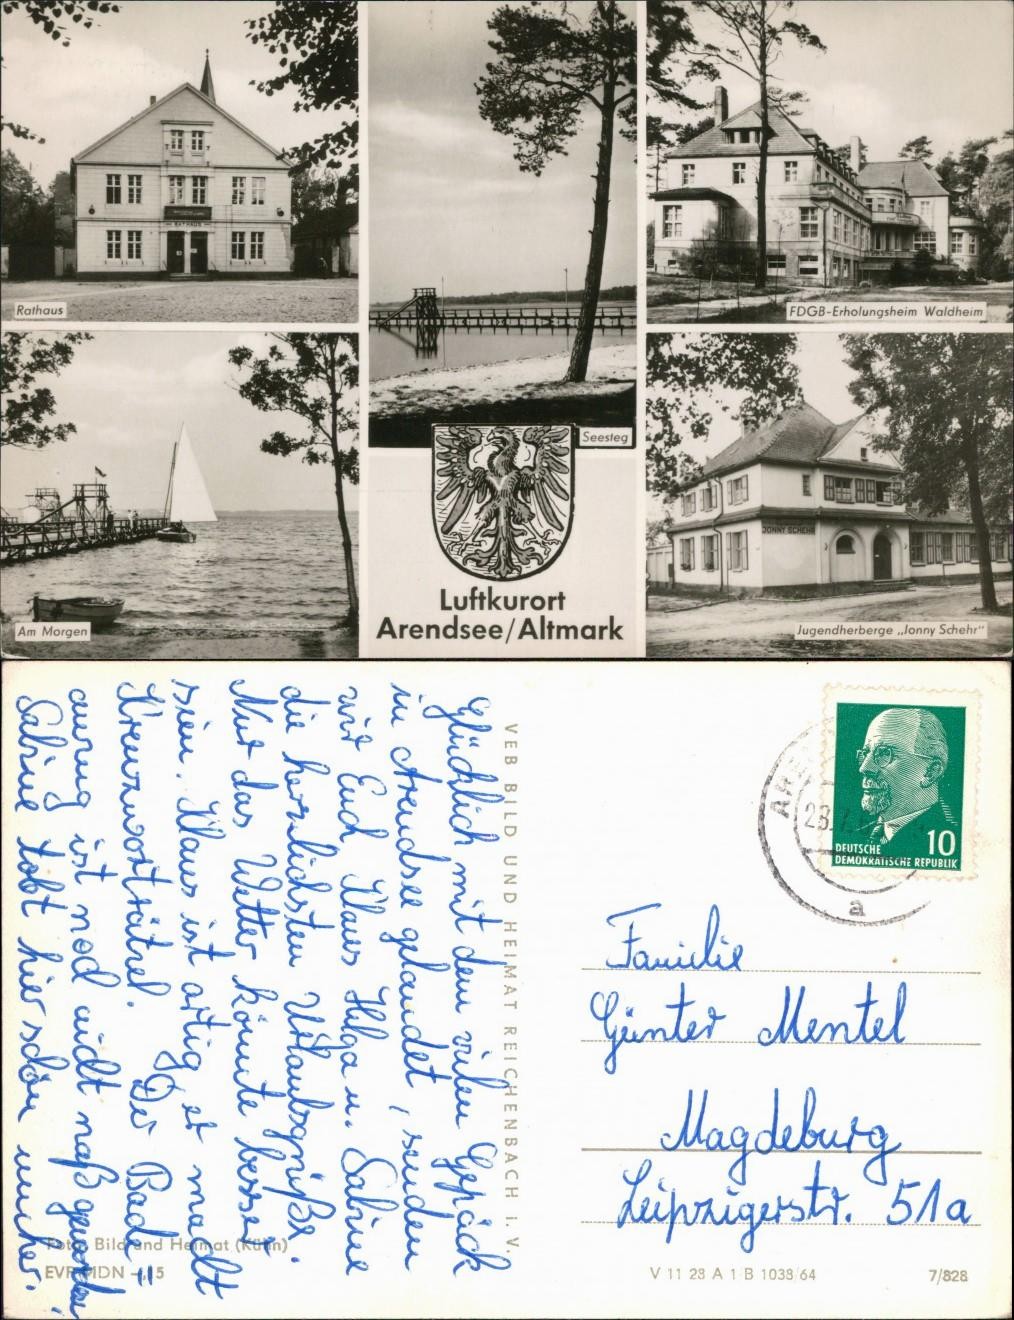 RATHAUS
Rathaus
Seesteg
FDGB-Erholungsheim Waldheim
Am Morgen
JONNY SCHEHR
Jugendherberge „Jonny Schehr"
Luftkurort
Arendsee/Altmark
Glücklich mit dem vielen Gepäck
in Arendsee gelandet, senden
wir Euch Klaus Helga u. Sabine
die herzlichsten Urlaubsgrüße.
Nur das Wetter könnte besser
sein. Klaus ist artig, er macht
Kreuzworträtsel. Der Bade=
anzug ist noch nicht naß geworden!
Sabine tobt hier schön umher.
VEB BILD UND HEIMAT REICHENBACH I. V.
10
DEUTSCHE
DEMOKRATISCHE REPUBLIK
a
Familie
Günter Mentel
Magdeburg
Leipzigerstr. 51a
Foto: Bild und Heimat (Kühn)
EVP MDN -,15
V 11 28 A 1 B 1038/64
7/828